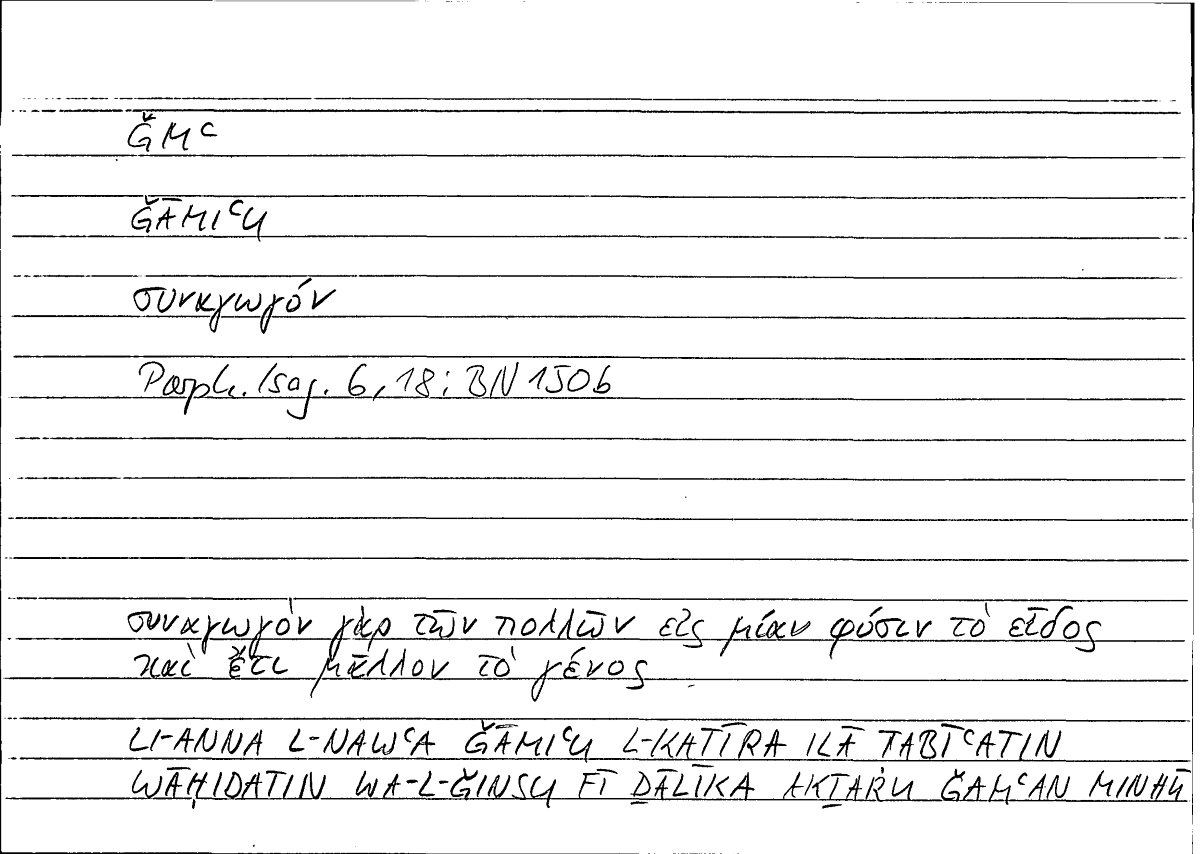 ǦMʿ
ǦĀMIʿU
συναγωγόν
Porph. Isag. 6, 18; BN 150b
συναγωγὸν γὰρ τῶν πολλῶν εἰς μίαν φύσιν τὸ εἶδος
καὶ ἔτι μᾶλλον τὸ γένος
LI-ANNA L-NAWʿA ǦĀMIʿU L-KATĪRA ILĀ TABĪʿATIN
WĀḤIDATIN WA-L-ǦINSU FĪ ḎĀLIKA AKṮARU ǦAMʿAN MINHŪ